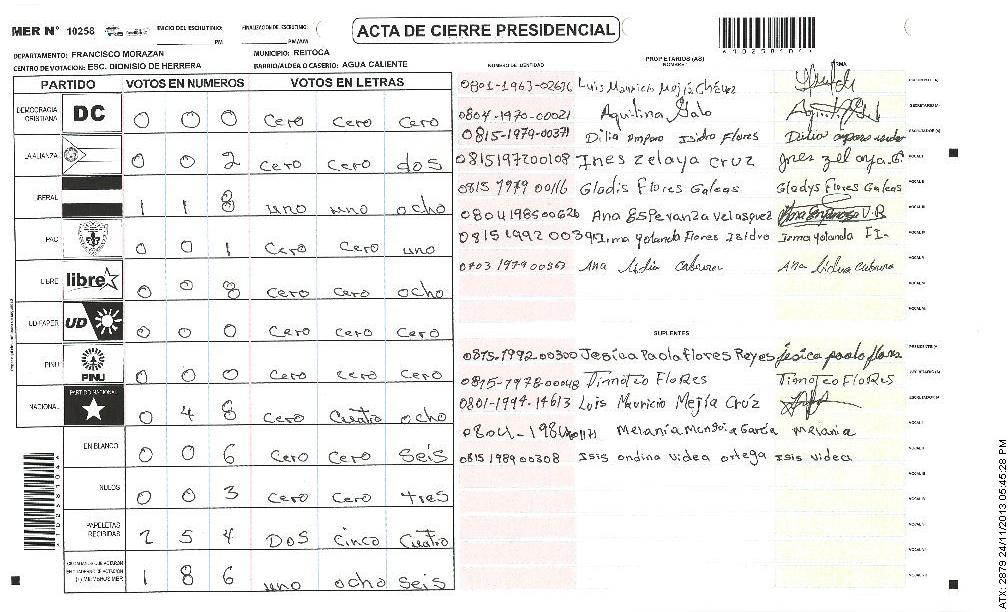 MER N° 10258 INICIO DEL ESCRUTINIO: PM FINALIZACION DEL ESCRUTINIO: PM/AM
ACTA DE CIERRE PRESIDENCIAL
DEPARTAMENTO: FRANCISCO MORAZAN MUNICIPIO: REITOCA
CENTRO DE VOTACION: ESC. DIONISIO DE HERRERA BARRIO/ALDEA O CASERIO: AGUA CALIENTE
PARTIDO VOTOS EN NUMEROS VOTOS EN LETRAS
DEMOCRACIA CRISTIANA DC 0 0 0 Cero Cero Cero
LA ALIANZA 0 0 2 Cero Cero dos
LIBERAL 1 1 8 uno uno ocho
PAC 0 0 1 Cero Cero uno
LIBRE libre 0 0 8 Cero Cero ocho
UD FAPER UD 0 0 0 Cero Cero Cero
PINU PINU 0 0 0 Cero Cero Cero
NACIONAL PARTIDO NACIONAL 0 4 8 Cero Cuatro ocho
EN BLANCO 0 0 6 Cero Cero Seis
NULOS 0 0 3 Cero Cero tres
PAPELETAS RECIBIDAS 2 5 4 Dos Cinco Cuatro
1 8 6 uno ocho Seis
NUMERO DE IDENTIDAD PROPIETARIOS (AS) NOMBRE FIRMA
Luis Mauricio Mejía Chávez
0804-1970-00021 Aquilina Galo
0815-1979-00371 Dilia amparo Isidro Flores Dilia amparo isidro
0815197200108 Ines zelaya cruz Ines zelaya. C.
0815 1979 00116 Gladis Flores Galeas Gladys Flores Galeas
0804198500620 Ana Esperanza Velasquez
Irma Yolanda Flores Isidro Irma yolanda F I.
0703 1979 Ana Lidia Cabrera Ana Lidia Cabrera
SUPLENTES
0815-1992-00300 Jesica Paola Flores Reyes jesica paola flores
0815-1978-00048 Timoteo FloRes Timoteo FloRes
0801-1994-14613 Luis Mauricio Mejía Cruz
Melania García melania
0815 1989 00308 Isis ondina videa ortega Isis videa
ATX: 2879 24/11/2013 05:45:28 PM